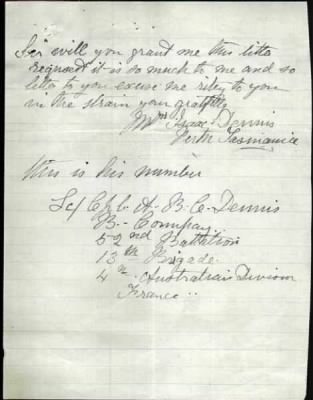 Sir will you grant me this little
request it is so much to me and so
little to you excuse me riting to you
in the strain your gratfully
Mrs Isaac Dennis
Perth Tasmania
this is his number
L/Cpl. A. B. C. Dennis
B-- Company
52nd Battalion
13th Brigade.
4th Australian Division
France..